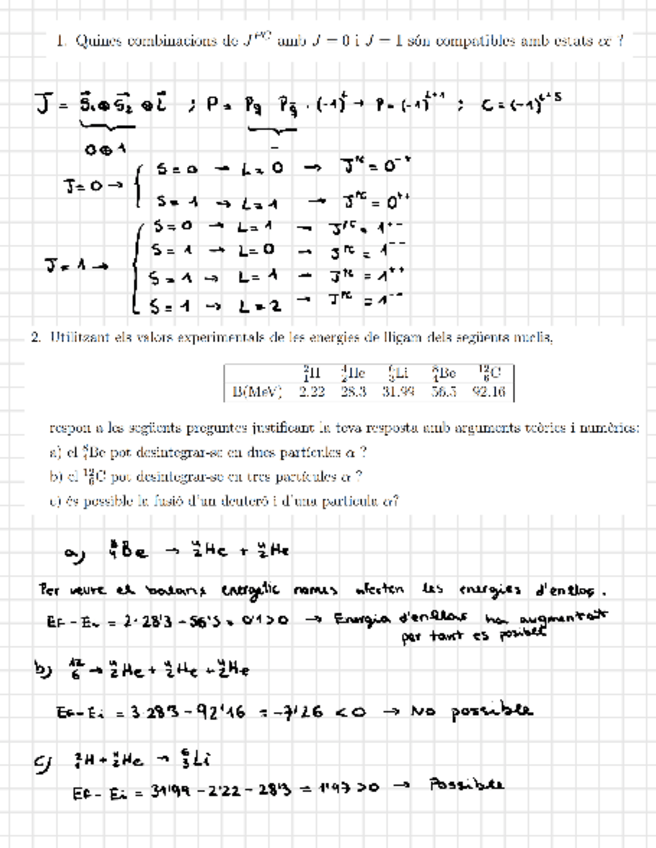 1. Quines combinacions de J^PC amb J = 0 i J = 1 són compatibles amb estats cc̄ ?
J⃗ = S⃗₁⊗S⃗₂ ⊗L⃗ ; P = P_q P_q̄ · (-1)^L → P = (-1)^(L+1) ; C = (-1)^(L+S)
0⊕1 -
J=0 → { S=0 → L=0 → J^PC = 0^-+
S=1 → L=1 → J^PC = 0^++
J=1 → { S=0 → L=1 → J^PC = 1^+-
S=1 → L=0 → J^PC = 1^--
S=1 → L=1 → J^PC = 1^++
S=1 → L=2 → J^PC = 1^--
2. Utilitzant els valors experimentals de les energies de lligam dels següents nuclis,
²₁H ⁴₂He ⁶₃Li ⁸₄Be ¹²₆C
B(MeV) 2.22 28.3 31.99 56.5 92.16
respon a les següents preguntes justificant la teva resposta amb arguments teòrics i numèrics:
a) el ⁸₄Be pot desintegrar-se en dues partícules α ?
b) el ¹²₆C pot desintegrar-se en tres partícules α ?
c) és possible la fusió d'un deuteró i d'una partícula α?
a) ⁸₄Be → ⁴₂He + ⁴₂He
Per veure el balanç energètic només afecten les energies d'enllaç.
Ef - Ei = 2·28'3 - 56'5 = 0'1>0 → Energia d'enllaç ha augmentat
per tant es possible
b) ¹²₆ → ⁴₂He + ⁴₂He + ⁴₂He
Ef-Ei = 3·28'3 - 92'16 = -7'26 <0 → No possible
c) ²₁H + ⁴₂He → ⁶₃Li
Ef - Ei = 31'99 - 2'22 - 28'3 = 1'47 >0 → Possible